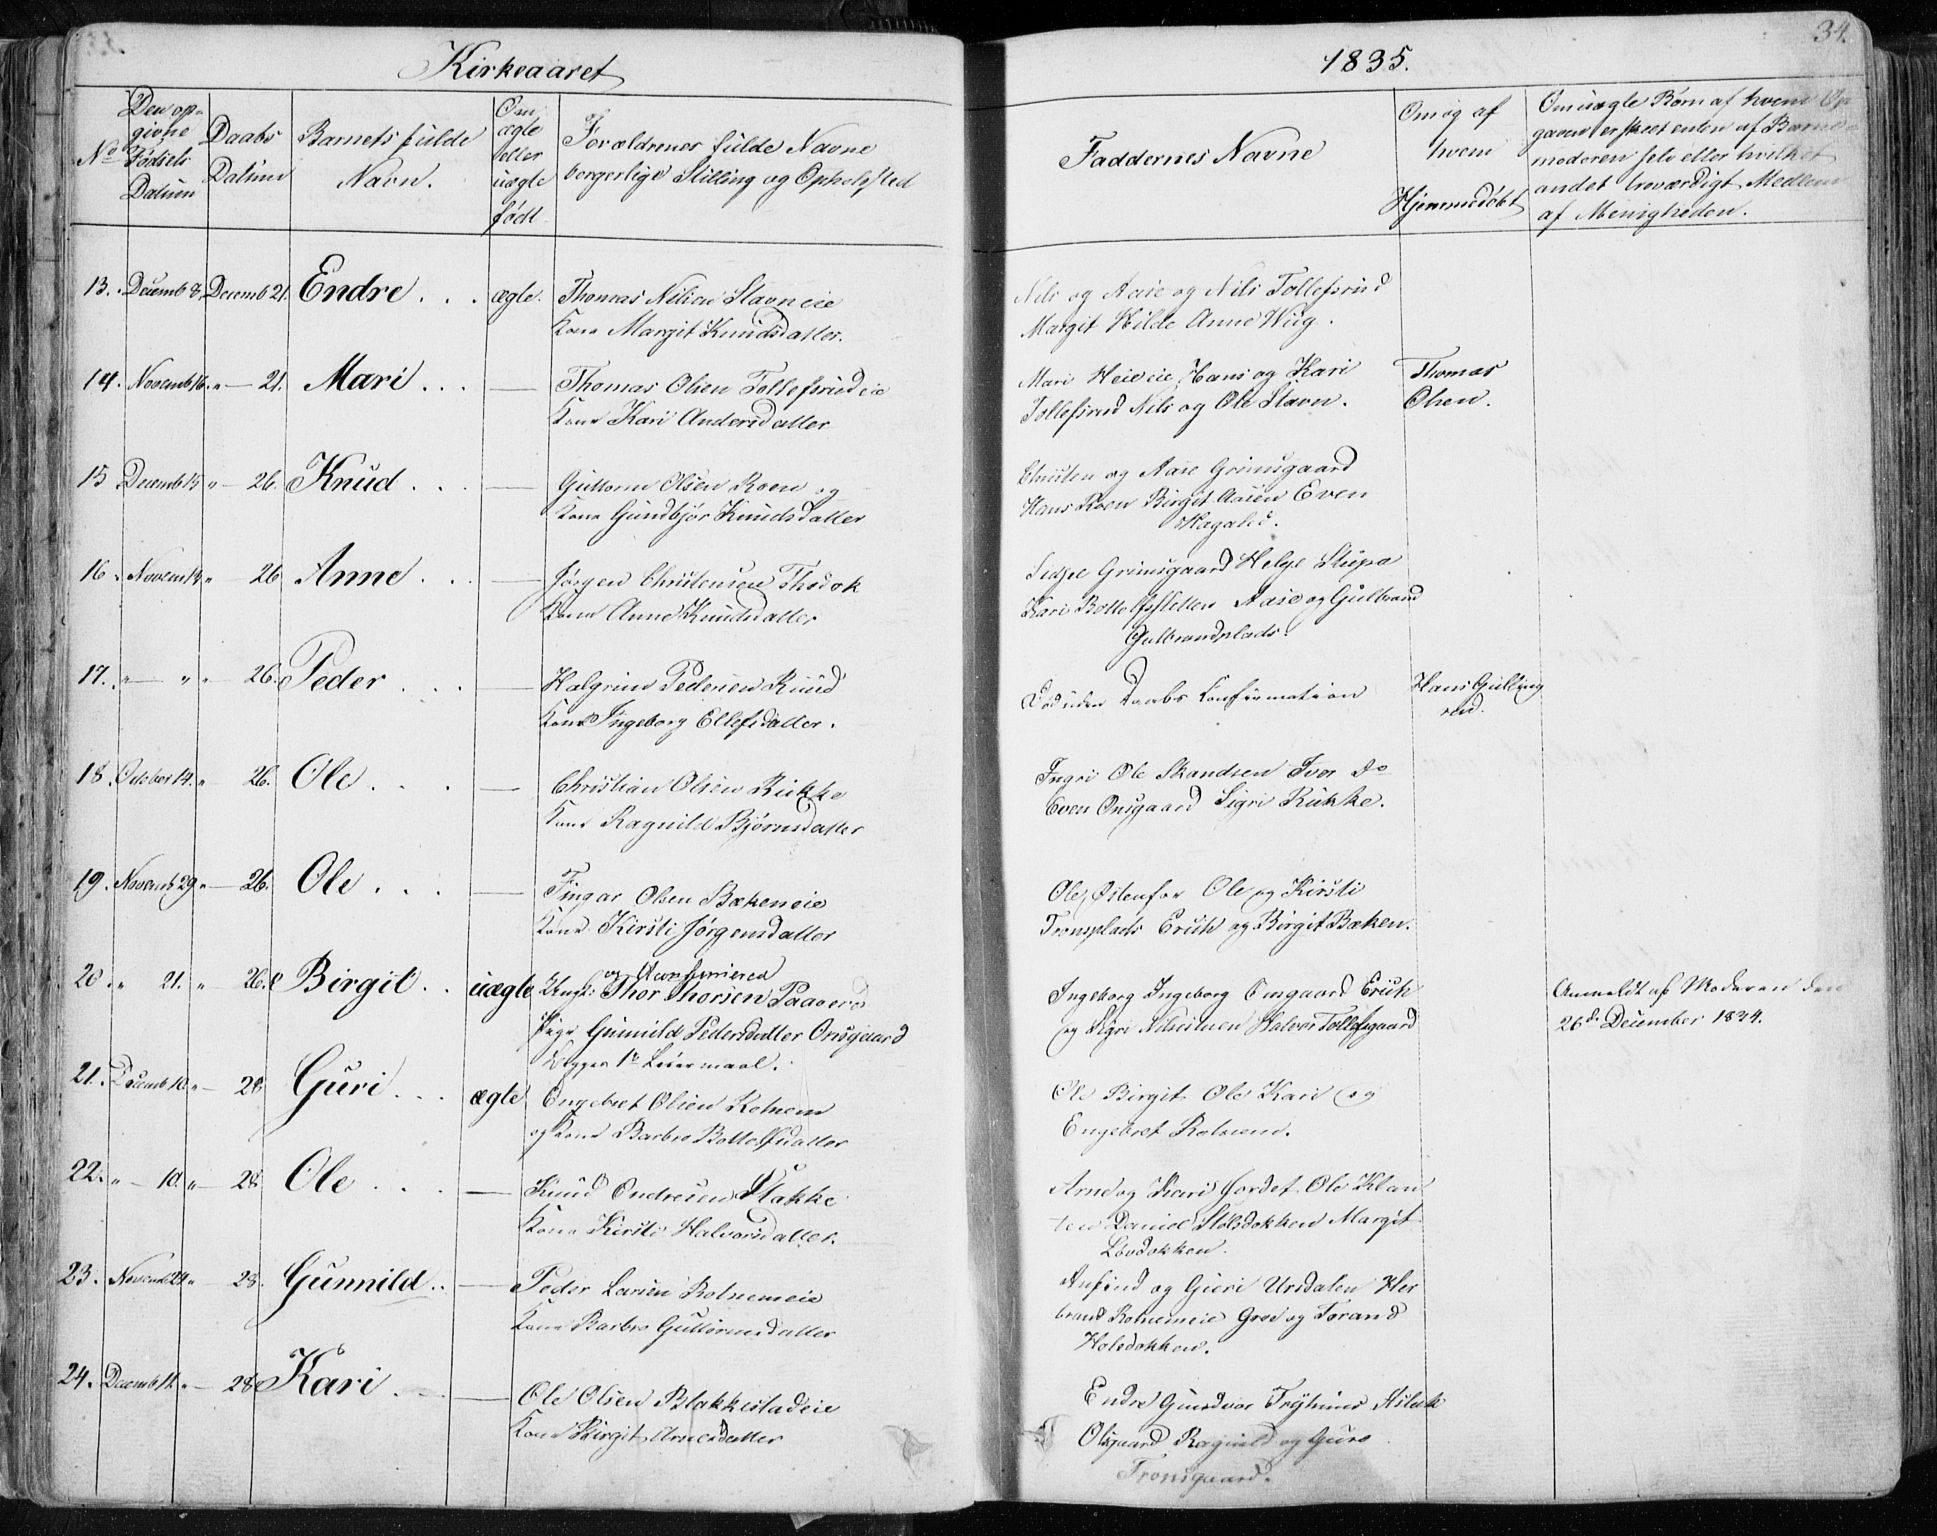 Kirkeaaret
1835.
34.
No
Den opgivne Fødsels Datum
Daabs Datum
Barnets fulde Navn.
Om ægte eller uægte født.
Forældrenes fulde Navne borgerlige Stilling og Opholdsted
Faddernes Navne
Om og af hvem Hjemmedøbt
Om uægte Børn af hvem Opgaven er skeet enten af Barnemoderen selv eller hvilket andet troværdigt Medlem af Menigheden.
13. Decemb 8. Decemb 21. Endre . . . ægte. Thomas Nilsen Slavneie
Kone Margit Knudsdatter.
Nils og Aase og Nils Tollefsrud
Margit Hilde Anne Wiig.
14. Novemb 16. „ — 21. Mari . . . — Thomas Olsen Tollefsrudeie
Kone Kari Andersdatter
Mari Heieie Hans og Kari
Tollefsrud Nils og Ole Slavn.
Thomas
Olsen.
15 Decemb 15 „ — 26. Knud . . . — Guttorm Olsen Roen og
Kone Gundbjør Knudsdatter
Christen og Aase Grimsgaard
Hans Roen Birgit Aasen Even
16. Novem 14 „ — 26 Anne . . . — Jørgen Christensen
Kone Anne Knudsdatter
Sidsel Grimsgaard Helge Stupa
Kari Bottolfsletten Aase og Gulbrand
Gulbrandsplads.
17. „ — „ „ 26. Peder . . . — Halgrim Pedersen Ruud
Kone Ingeborg Ellefsdatter.
Død uden Daabs Confirmation
Hans Gulling
rud.
18. October 14. „ 26. Ole . . . — Christian Olsen Rukke
Kone Ragnild Bjørnsdatter
Ingri Ole Skandsen Iver Do
Even Onsgaard Sigri Rukke.
19. Novemb 29 „ — 26. Ole . . . — Fingar Olsen Bækeneie
Kone Kirsti Jørgensdatter
Ole Østenfor Ole og Kirsti
Tronsplads Erich og Birgit Bæken.
20. „ 21. „ 26. Birgit . . uægte Ungk: Thor Thorsen Paaverd
Pige Gunnild Pedersdatter Onsgaard
Begges 1te Leiermaal.
Ingeborg Ingeborg Onsgaard Erich
og Sigri Nilsstuen Halvor Tollefsgaard
Anmeldt af Moderen den
26de December 1834.
21. Decemb 10. „ — 28 Guri . . . ægte Engebret Olsen Rotnem
og Kone Barbro Bottolfsdatter
Ole Birgit Ole Kari og
Engebret Rotnem.
22. „ — 10. „ — 28 Ole . . . — Knud Endresen Stakke
Kone Kirsti Halvorsdatter.
Arne og Kari Jordet Ole Klan
ten Daniel Stølsdokken Margit
Løvdokken.
23. Novemb 24 „ — 28. Gunnild . . — Peder Larsen Rotnemeie
Kone Barbro Guttormsdatter
Anfind og Guri Ursdalen Her
brand Rotnemeie Groe og Torand
Holsdokken.
24. Decemb 11. „ — 28 Kari . . . — Ole Olsen Blakkestadeie
Kone Birgit Arnesdatter
Endre Gundvor Trythuus Aslak
Olsgaard Ragnild og Guro
Tronsgaard.